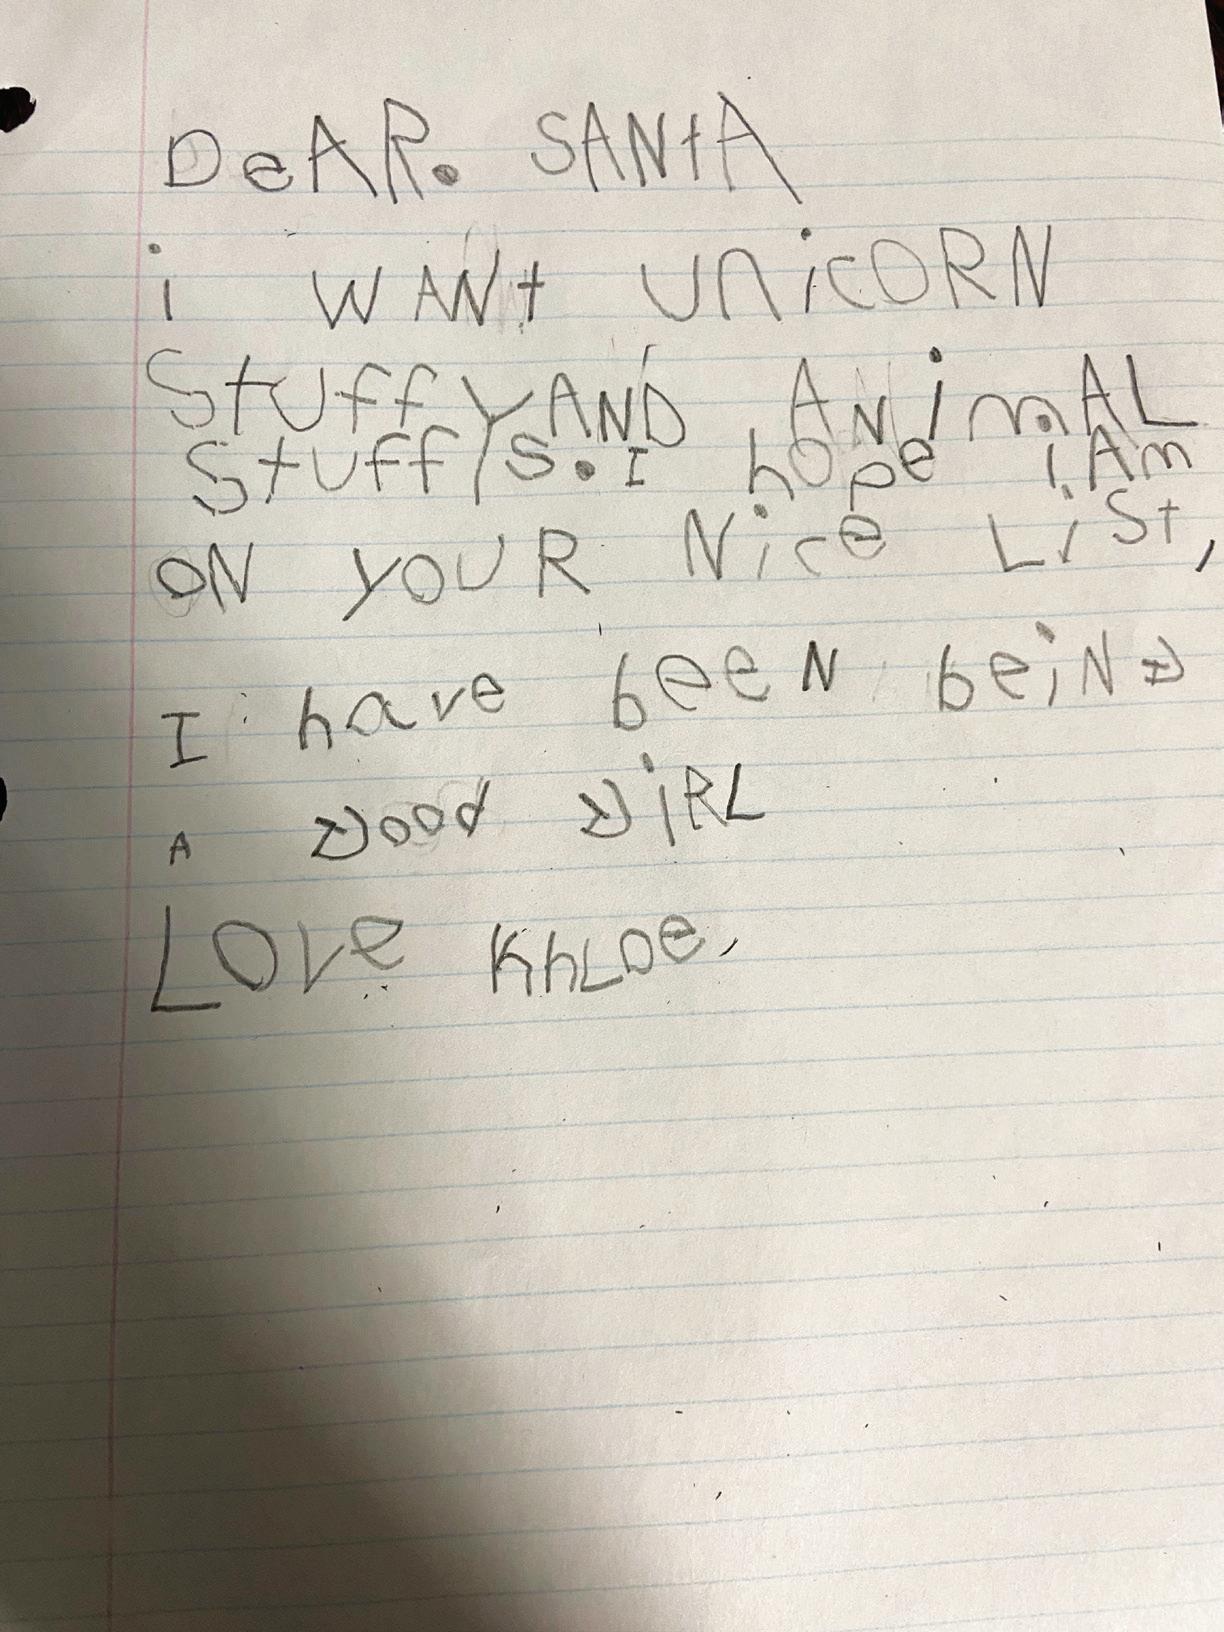 DeAR. SANtA
i WANt UNicORN
StUffy AND ANimAL
Stuffys. I hope i Am
ON YOUR Nice List,
I have beeN beiNG
A Good GiRL
Love KhLOe,